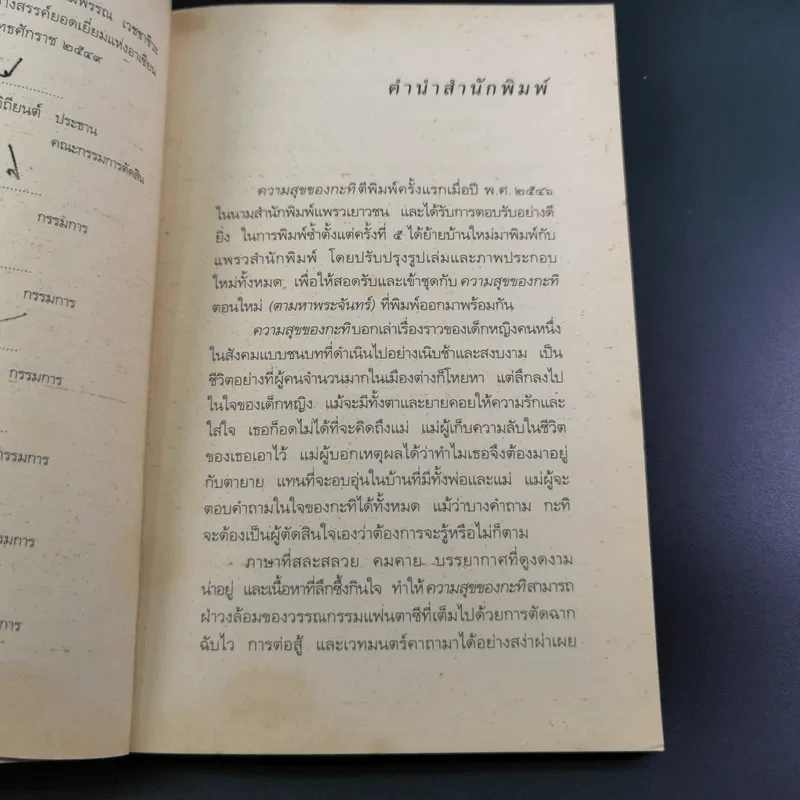 มพรรณ เวชชาชีวะ
างสรรค์ยอดเยี่ยมแห่งอาเซียน
ทธศักราช ๒๕๔๙
วิถียนต์ ประธาน
คณะกรรมการตัดสิน
กรรมการ
กรรมการ
กรรมการ
กรรมการ
กรรมการ
กรรมการ
คำนำสำนักพิมพ์
ความสุขของกะทิ ตีพิมพ์ครั้งแรกเมื่อปี พ.ศ. ๒๕๔๖
ในนามสำนักพิมพ์แพรวเยาวชน และได้รับการตอบรับอย่างดี
ยิ่ง ในการพิมพ์ซ้ำตั้งแต่ครั้งที่ ๕ ได้ย้ายบ้านใหม่มาพิมพ์กับ
แพรวสำนักพิมพ์ โดยปรับปรุงรูปเล่มและภาพประกอบ
ใหม่ทั้งหมด เพื่อให้สอดรับและเข้าชุดกับ ความสุขของกะทิ
ตอนใหม่ (ตามหาพระจันทร์) ที่พิมพ์ออกมาพร้อมกัน
ความสุขของกะทิบอกเล่าเรื่องราวของเด็กหญิงคนหนึ่ง
ในสังคมแบบชนบทที่ดำเนินไปอย่างเนิบช้าและสงบงาม เป็น
ชีวิตอย่างที่ผู้คนจำนวนมากในเมืองต่างก็โหยหา แต่ลึกลงไป
ในใจของเด็กหญิง แม้จะมีทั้งตาและยายคอยให้ความรักและ
ใส่ใจ เธอก็อดไม่ได้ที่จะคิดถึงแม่ แม่ผู้เก็บความลับในชีวิต
ของเธอเอาไว้ แม่ผู้บอกเหตุผลได้ว่าทำไมเธอจึงต้องมาอยู่
กับตายาย แทนที่จะอบอุ่นในบ้านที่มีทั้งพ่อและแม่ แม่ผู้จะ
ตอบคำถามในใจของกะทิได้ทั้งหมด แม้ว่าบางคำถาม กะทิ
จะต้องเป็นผู้ตัดสินใจเองว่าต้องการจะรู้หรือไม่ก็ตาม
ภาษาที่สละสลวย คมคาย บรรยากาศที่ดูงดงาม
น่าอยู่ และเนื้อหาที่ลึกซึ้งกินใจ ทำให้ ความสุขของกะทิ สามารถ
ฝ่าวงล้อมของวรรณกรรมแฟนตาซีที่เต็มไปด้วยการตัดฉาก
ฉับไว การต่อสู้ และเวทมนตร์คาถามาได้อย่างสง่าผ่าเผย